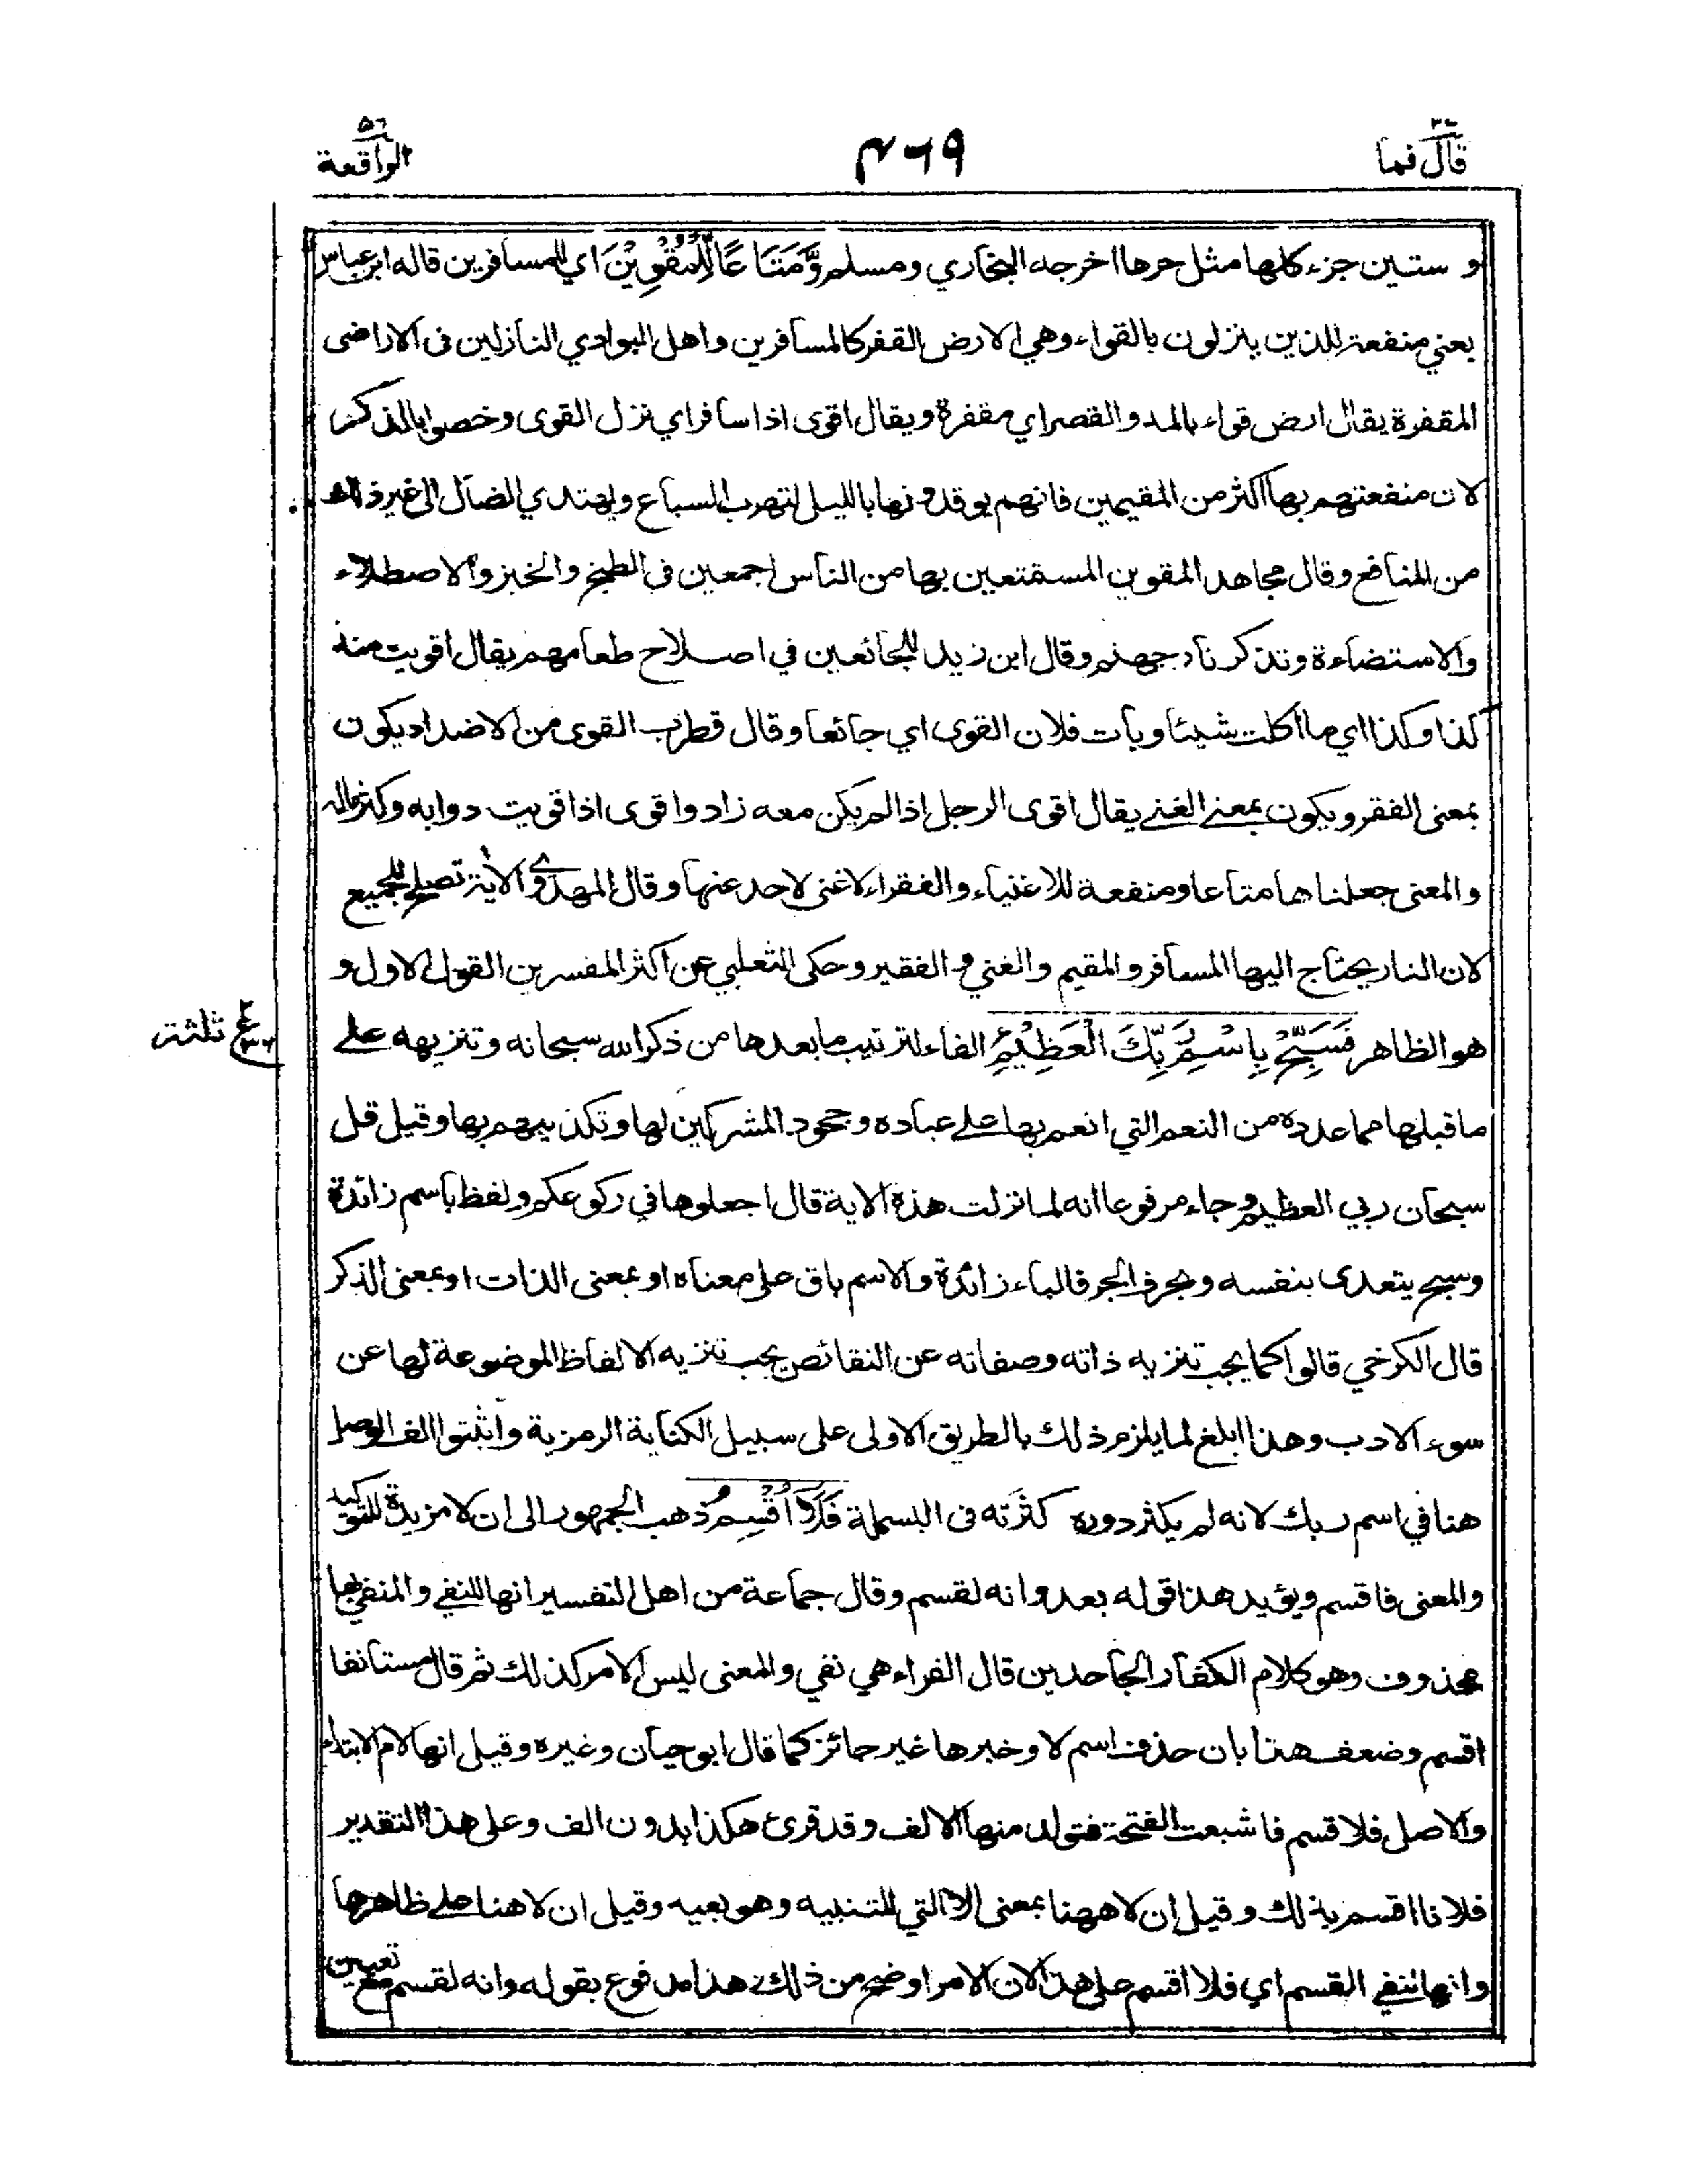 قال فما ٢٧
٤٦٩
الواقعة ٥٦
و ستين جزء كلها مثل حرها اخرجه البخاري ومسلم وَّمَتَاعًا لِّلْمُقْوِيْنَ اي للمسافرين قاله ابن عباس
يعني منفعة للذين ينزلون بالقواء وهي الارض القفر كالمسافرين واهل البوادي النازلين فى الاراضى
المقفرة يقال ارض قواء بالمد والقصر اي مقفرة ويقال اقوى اذا سافر اي نزل القوى وخصوا بالذكر
لان منفعتهم بها اكثر من المقيمين فانهم يوقدونها بالليل لتهرب السباع ويهتدي الضال الى غير ذلك
من المنافع وقال مجاهد المقوين المستمتعين بها من الناس اجمعين فى الطبخ والخبز والاصطلاء
والاستضاءة وتذكر نار جهنم وقال ابن زيد للجائعين في اصلاح طعامهم يقال اقويت منذ
كذا وكذا اي ما اكلت شيئا وبات فلان القوى اي جائعا وقال قطرب القوى من الاضداد يكون
بمعنى الفقر ويكون بمعنے الغنے يقال اقوى الرجل اذا لم يكن معه زاد واقوى اذا قويت دوابه وكثر ماله
والمعنى جعلناها متاعا ومنفعة للاغنياء والفقراء لاغنى لاحد عنها وقال المهدوي الآية تصلح للجميع
لان النار يحتاج اليها المسافر والمقيم والغني والفقير وحكى الثعلبي عن اكثر المفسرين القول الاول و
هو الظاهر فَسَبِّحْ بِاسْمِ رَبِّكَ الْعَظِيْمِ الفاء لترتيب ما بعدها من ذكر الله سبحانه وتنزيهه علے
ع ثلثة
ما قبلها مما عدده من النعم التي انعم بها علے عباده وجحود المشركين لها وتكذيبهم بها وقيل قل
سبحان ربي العظيم وجاء مرفوعا انه لما نزلت هذه الاية قال اجعلوها في ركوعكم ولفظ باسم زائدة
وسبح يتعدى بنفسه وبحرف الجر فالباء زائدة والاسم باق على معناه او بمعنى الذات او بمعنى الذكر
قال الكرخي قالوا كما يجب تنزيه ذاته وصفاته عن النقائص يجب تنزيه الالفاظ الموضوعة لها عن
سوء الادب وهذا ابلغ لما يلزم ذلك بالطريق الاولى على سبيل الكناية الرمزية واثبتوا الف الوصل
هنا في اسم ربك لانه لم يكثر دوره كثرته فى البسملة فَلَآ اُقْسِمُ ذهب الجمهور الى ان لا مزيدة للتوكيد
والمعنى فاقسم ويؤيد هذا قوله بعد وانه لقسم وقال جماعة من اهل التفسير انها للنفي والمنفي بها
محذوف وهو كلام الكفار الجاحدين قال الفراء هي نفي والمعنى ليس الامر كذلك ثم قال مستانفا
اقسم وضعف هذا بان حذف اسم لا وخبرها غير جائز كما قال ابو حيان وغيره وقيل انها لام الابتداء
والاصل فلا قسم فاشبعت الفتحة فتولد منها الالف وقد قرئ هكذا بدون الف وعلى هذا التقدير
فلانا اقسم بذلك وقيل ان لا ههنا بمعنى الا التي للتنبيه وهو بعيد وقيل ان لا هنا علے ظاهرها
وانها لنفي القسم اي فلا اقسم على هذا لان الامر اوضح من ذلك هذا مدفوع بقوله وانه لقسم مع تعيين